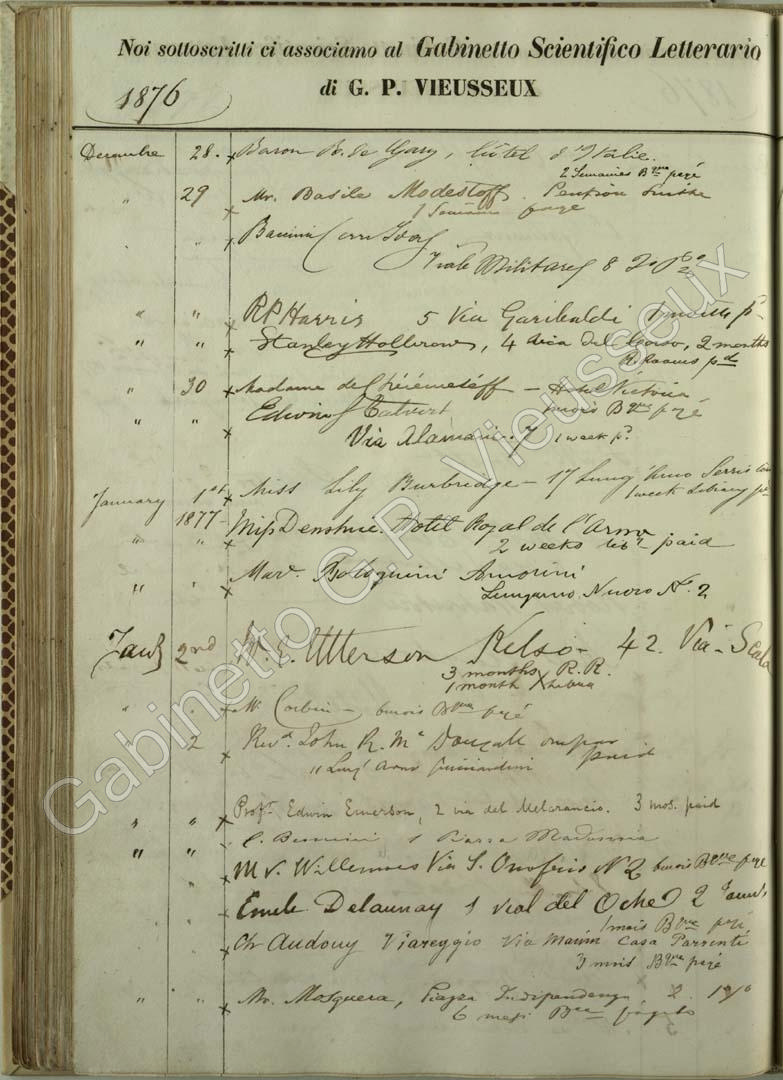 Noi sottoscritti ci associamo al Gabinetto Scientifico Letterario
di G. P. VIEUSSEUX
1876
Decembre 28. x Baron B. de Gary, hôtel d'Italie.
2 Semaines Bque payé
" 29 x Mr. Basile Modestoff. Pension Suisse
1 Semaine payé
" " x
Viale Militare 8
" " x RP Harris 5 Via Garibaldi
" " x Stanley 4 del Corso, 2 months
R. Rooms pd
" 30 x Madame de Chérémeteff - Hotel Victoria
1 mois Bque payé
" " x Edwin S Calvert
Via Alamanni. 7 1 week pd.
January 1st x Miss Lily Burbridge - 17 Lung'Arno Serristori
1 week Library pd
1877
" " x Miss Hotel Royal de l'Arno
2 weeks libry paid
" " x Mar. Bolognini Amorini
Lungarno Nuovo No. 2
Jany 2nd x W. E. Utterson Kelso - 42. Via Scala
3 months R.R.
1 month
" " x Mr Corbin - 1 mois Bque payé
" 2 x Revd. John R. McDougall
11 Lung' Arno Guicciardini paid
" " x Profr. Edwin Emerson, 2 via del Melarancio. 3 mos. paid
" " 1 Piazza Madonna
x Mr. Willemses Via S. Onofrio N 2 1 mois Bque payé
x Emile Delaunay 1 del Oche
1 mois Bque payé
x Ch Audouy Viareggio Via Casa Parrenti
3 mois Bque payé
" " x Mr. Mosquera, Piazza Indipendenza, 2.
6 mesi pagato
Gabinetto G.P. Vieusseux